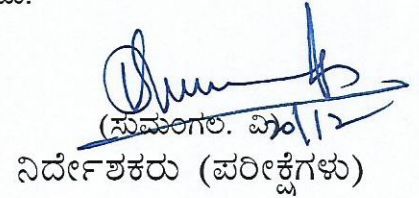 (ಸುಮಂಗಲ. ವಿ)
20/12
ನಿರ್ದೇಶಕರು (ಪರೀಕ್ಷೆಗಳು)